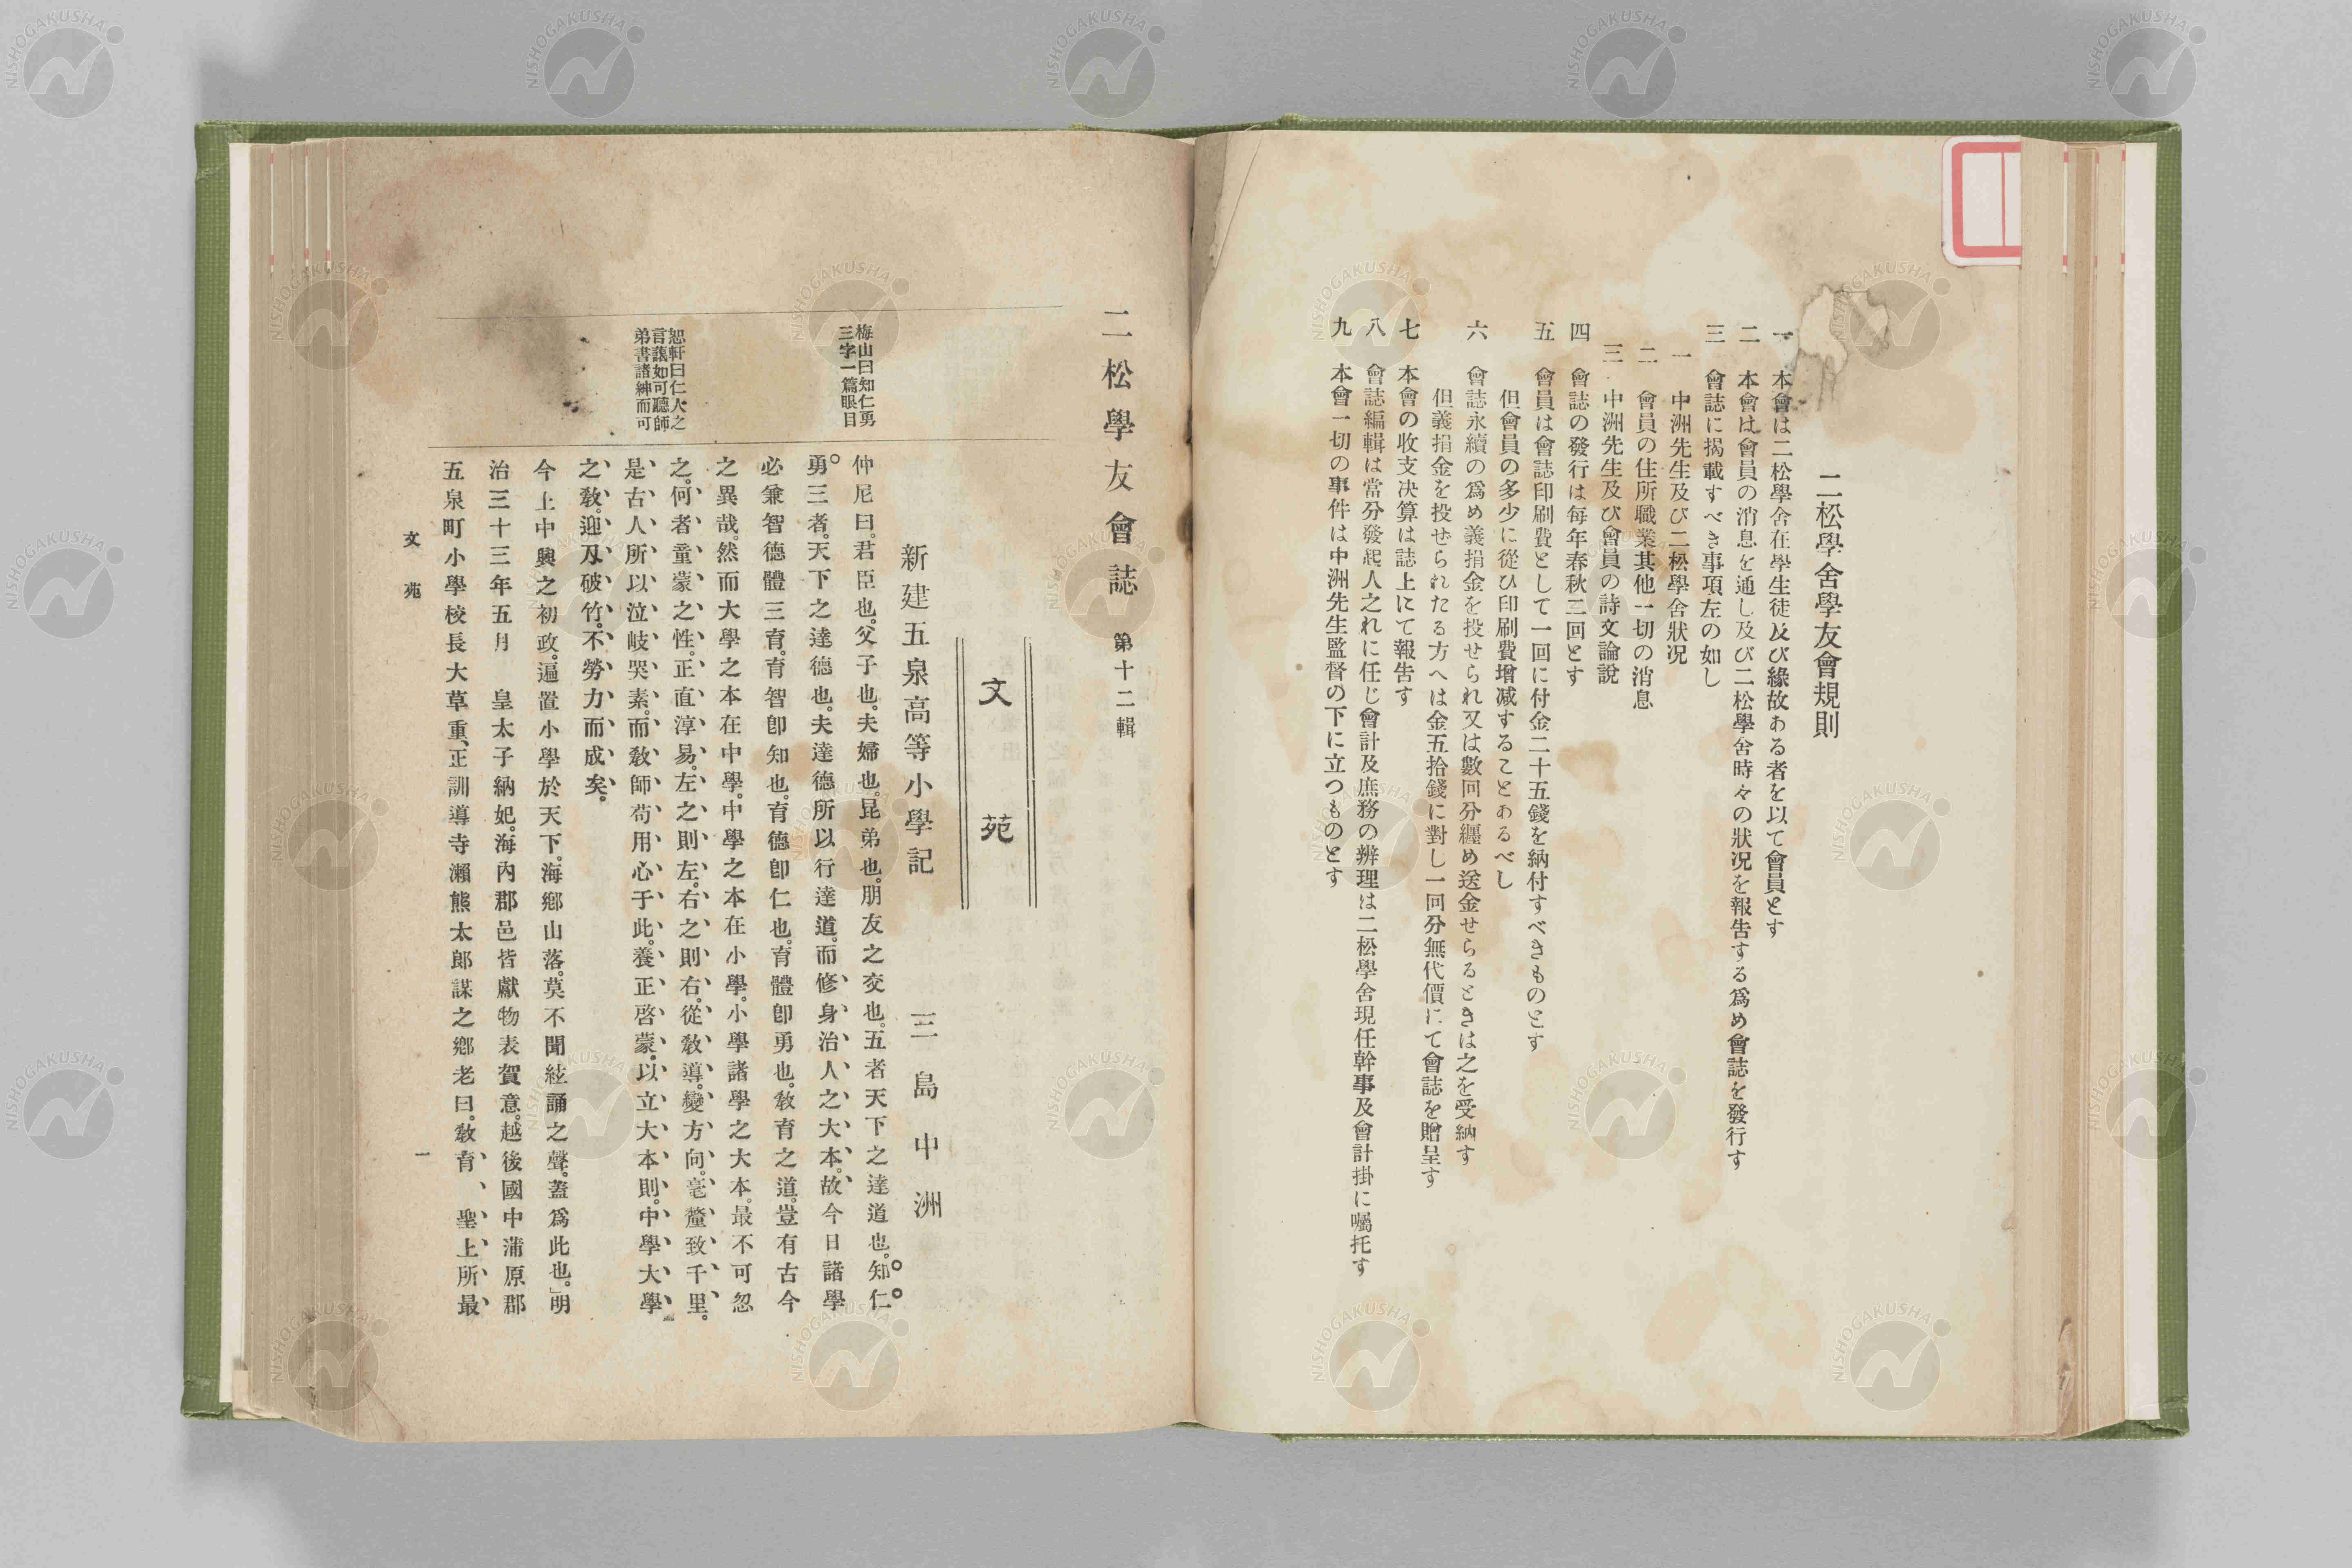 二松學舍學友會規則
一 本會は二松學舍在學生徒及び緣故ある者を以て會員とす
二 本會は會員の消息を通し及び二松學舍時々の狀况を報告する爲め會誌を發行す
三 會誌に揭載すべき事項左の如し
一 中洲先生及び二松學舍狀况
二 會員の住所職業其他一切の消息
三 中洲先生及び會員の詩文論說
四 會誌の發行は每年春秋二回とす
五 會員は會誌印刷費として一回に付金二十五錢を納付すべきものとす
但會員の多少に從ひ印刷費增减することあるべし
六 會誌永續の爲め義捐金を投せられ又は數回分纒め送金せらるときは之を受納す
但義捐金を投せられたる方へは金五拾錢に對し一回分無代價にて會誌を贈呈す
七 本會の收支决算は誌上にて報告す
八 會誌編輯は當分發起人之れに任じ會計及庶務の辨理は二松學舍現任幹事及會計掛に囑托す
九 本會一切の事件は中洲先生監督の下に立つものとす
二松學友會誌 第十二輯
文苑
新建五泉高等小學記 三島中洲
梅山曰知仁勇
三字一篇眼目
仲尼曰。君臣也。父子也。夫婦也。昆弟也。朋友之交也。五者天下之達道也。知仁
勇三者。天下之達德也。夫達德所以行達道。而修身治人之大本。故今日諸學
必兼智德體三育。育智卽知也。育德卽仁也。育體卽勇也。敎育之道。豈有古今
之異哉。然而大學之本在中學。中學之本在小學。小學諸學之大本。最不可忽
恕軒曰仁人之
言藹如可聽師
弟書諸紳而可
之。何者童蒙之性。正直淳易。左之則左。右之則右。從敎導。變方向。毫釐致千里。
是古人所以泣岐哭素。而敎師苟用心于此。養正啓蒙。以立大本則。中學大學
之敎。迎刃破竹。不勞力而成矣。
今上中興之初政。遍置小學於天下。海鄕山落。莫不聞絃誦之聲。蓋爲此也。」明
治三十三年五月 皇太子納妃。海內郡邑皆獻物表賀意。越後國中蒲原郡
五泉町小學校長大草重、正訓導寺瀨熊太郎謀之鄕老曰。敎育、聖上所最
文苑 一
NISHOGAKUSHA